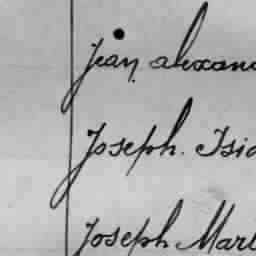 Jean alexan
Joseph. Isid
Joseph Mar